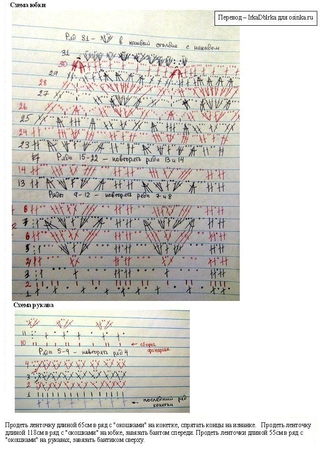 Схема юбки
Перевод – IrkaDbIrka для osinka.ru
Ряд 31 – в каждый столбик с накидом
31
30
29
28
27
26
25
24
23
Ряды 15-22 – повторять ряды 13 и 14
14
13
Ряды 9-12 – повторять ряды 7 и 8
8
7
6
5
4
3
2
1
Схема рукава
11
10
Ряды 5-9 – повторять ряд 4
4
3
2
1
последний ряд кокетки
Продеть ленточку длиной 65см в ряд с "окошками" на кокетке, спрятать концы на изнанке. Продеть ленточку
длиной 118см в ряд с "окошками" на юбке, завязать бантом спереди. Продеть ленточки длиной 55см в ряд с
"окошками" на рукавах, завязать бантиком сверху.